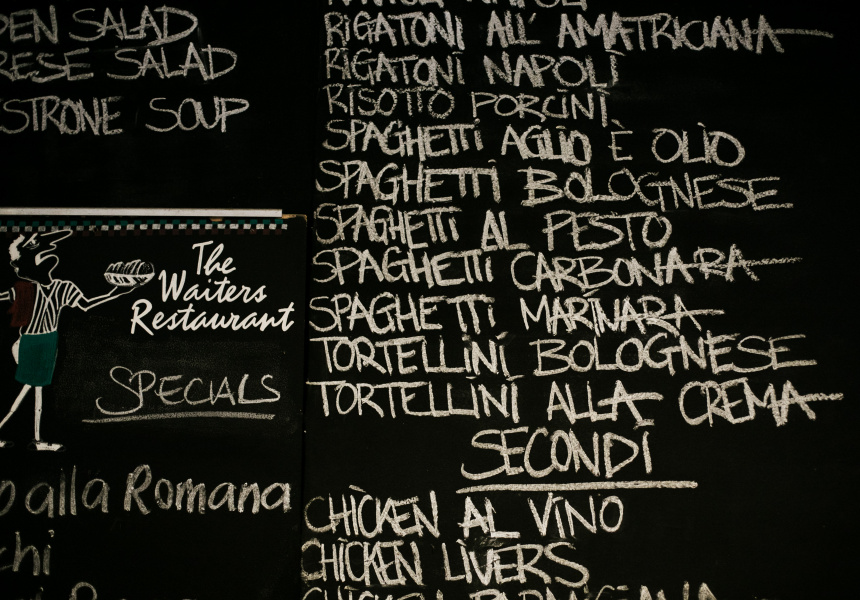 PEN SALAD
RESE SALAD
STRONE SOUP
The
Waiters
Restaurant
SPECIALS
o alla Romana
chi
RIGATONI ALL' AMATRICIANA
RIGATONI NAPOLI
RISOTTO PORCINI
SPAGHETTI AGLIO È OLIO
SPAGHETTI BOLOGNESE
SPAGHETTI AL PESTO
SPAGHETTI CARBONARA
SPAGHETTI MARINARA
TORTELLINI BOLOGNESE
TORTELLINI ALLA CREMA
SECONDI
CHICKEN AL VINO
CHICKEN LIVERS
CHICKEN PARMIGIANA